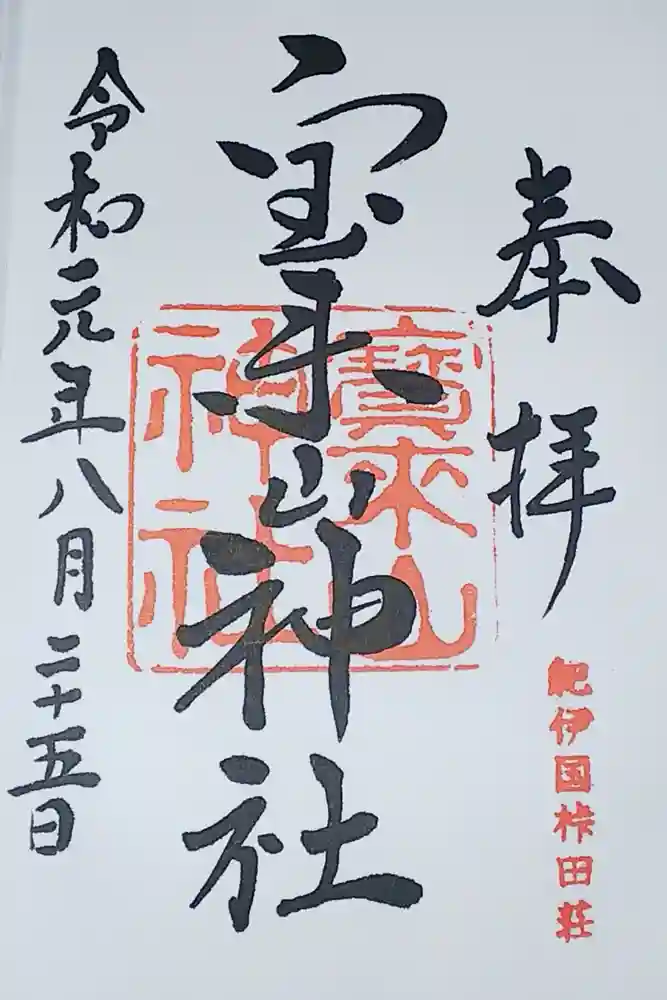 奉拝
紀伊国桛田荘
宝来山神社
寳来山
神社
令和元年八月二十五日